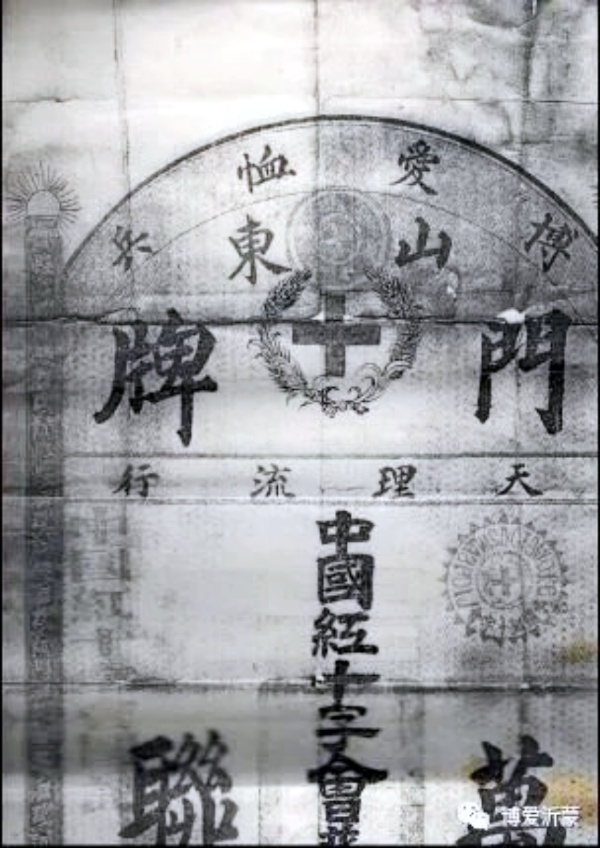 博愛恤兵
山東
門牌
天理流行
中國紅十字會
萬
聯
博爱沂蒙